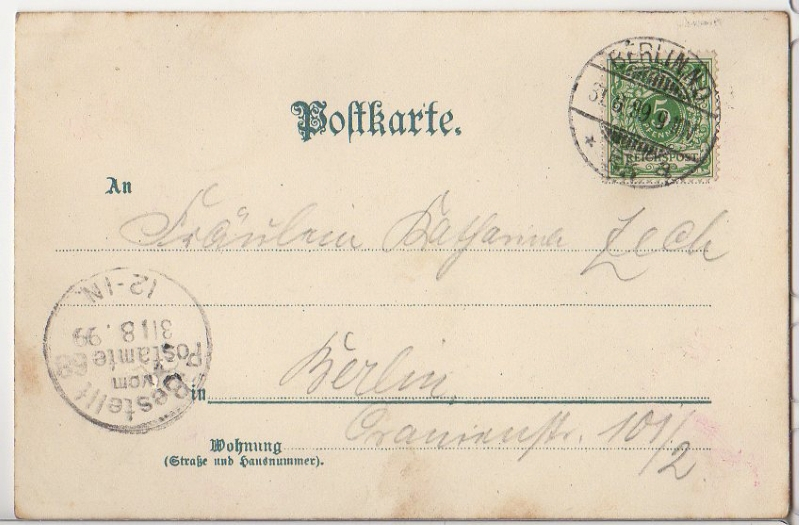 BERLIN N.O.
5
REICHSPOST
Postkarte.
An
Fräulein Katharina Zech
12-1N.
31 8. 99
Postamte 68
vom
Bestellt
in Berlin,
Oranienstr. 101/2.
Wohnung
(Straße und Hausnummer).